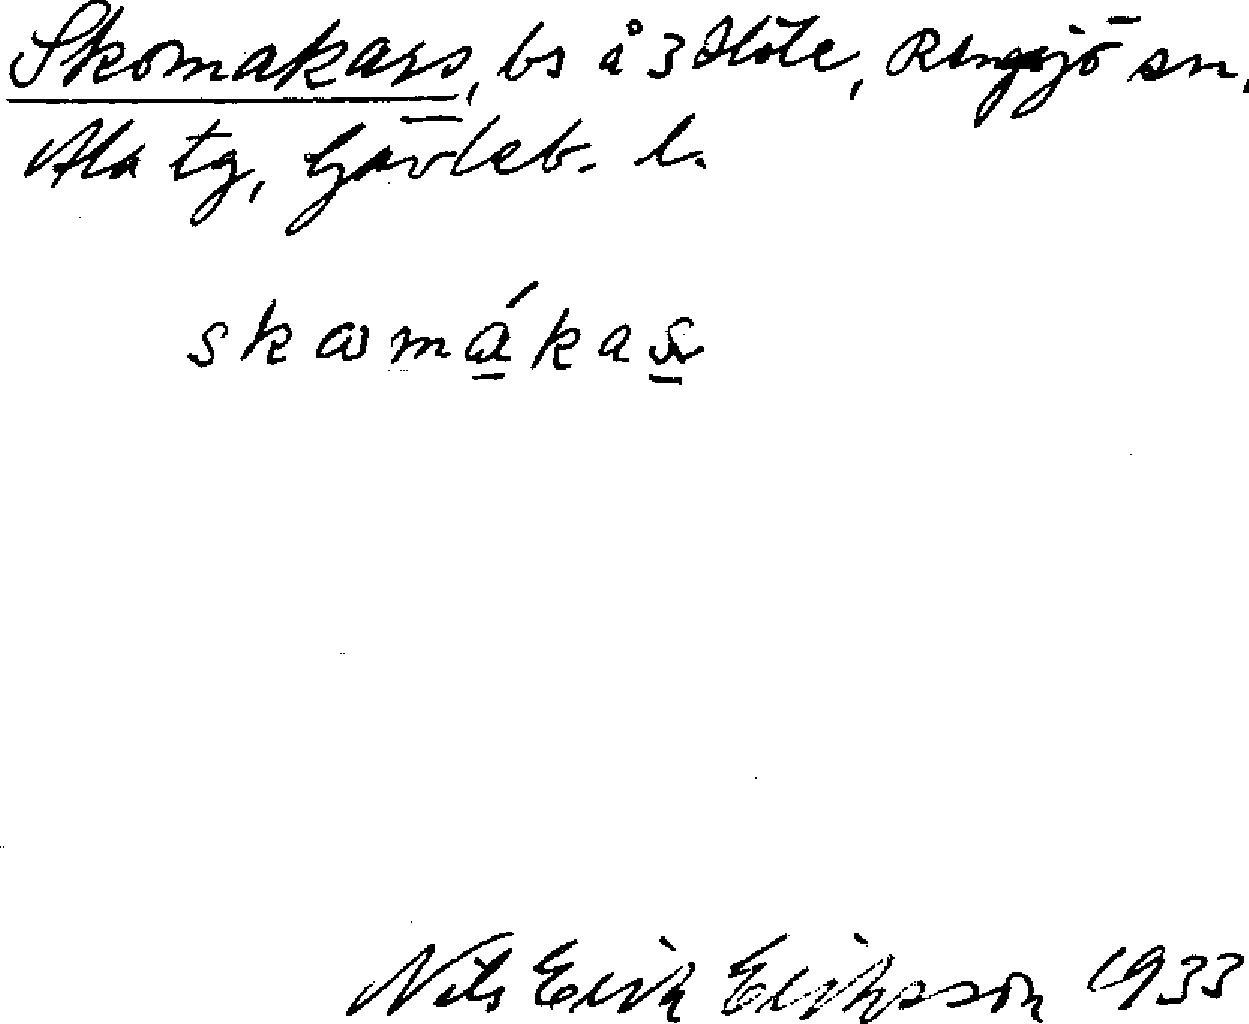 Skomakars, bs å 3 Höle, Rengsjö sn,
Ala tg, Gävleb. l.
skωmákas̠
Nils Erik Eriksson 1933